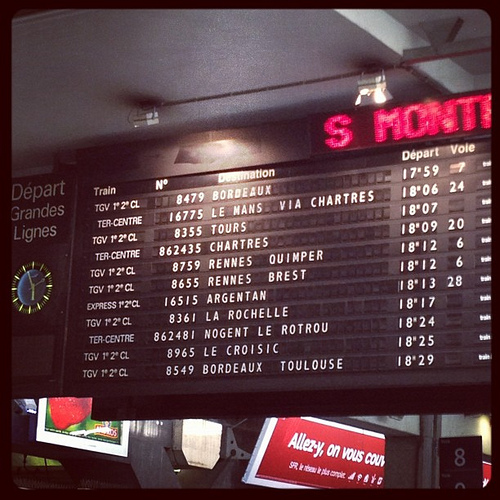 S MONT
Départ
Grandes
Lignes
Train N° Destination Départ Voie
TGV 1°2°CL 8479 BORDEAUX 17H59 7
TER-CENTRE 16775 LE MANS VIA CHARTRES 18H06 24
TGV 1°2°CL 8355 TOURS 18H07
TER-CENTRE 862435 CHARTRES 18H09 20
TGV 1°2°CL 8759 RENNES QUIMPER 18H12 6
TGV 1°2°CL 8655 RENNES BREST 18H12 6
EXPRESS 1°2°CL 16515 ARGENTAN 18H13 28
TGV 1°2°CL 8361 LA ROCHELLE 18H17
TER-CENTRE 862481 NOGENT LE ROTROU 18H24
TGV 1°2°CL 8965 LE CROISIC 18H25
TGV 1°2°CL 8549 BORDEAUX TOULOUSE 18H29
Allez-y, on vous couv
SFR, le réseau le plus complet.
8